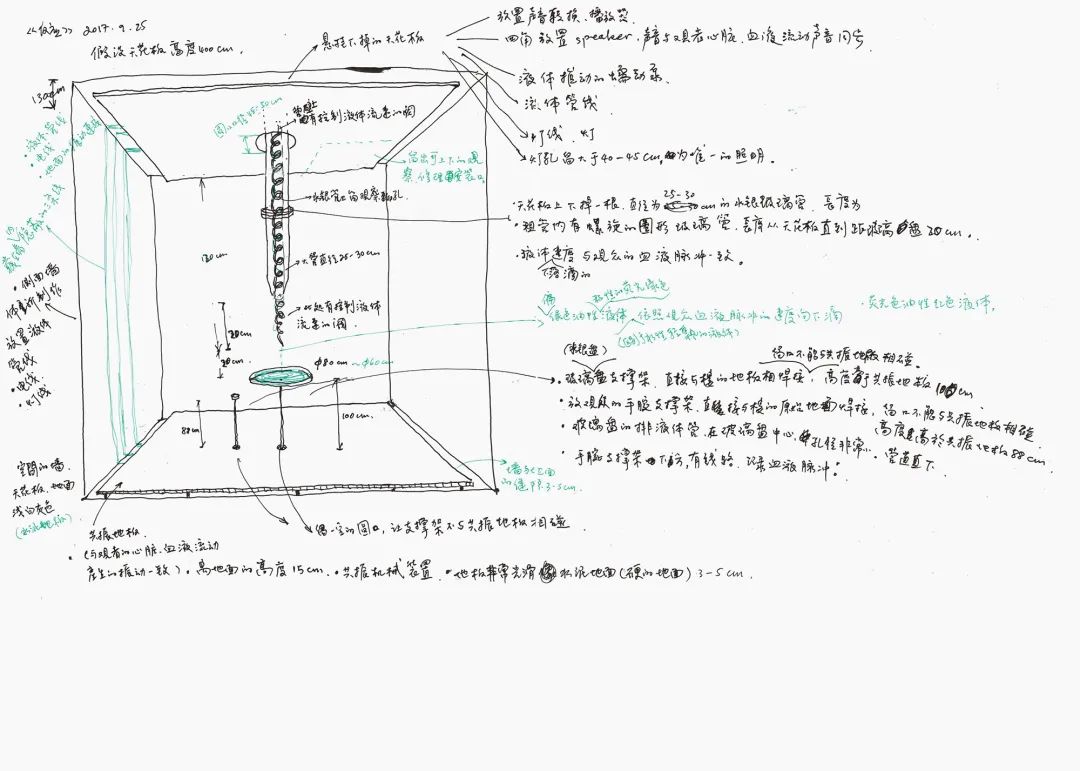 2017.9.25
假设天花板高度400cm.
悬挂下掉的天花板
放置声音转换、播放器
四角放置 speaker, 声音与观者心脏、血液流动声音同步
液体推动的蠕动泵
流体管线
灯线、灯
灯孔留大于40-45cm, 为唯一的照明。
130cm
液体管线
电线
圆口口径 25-30cm
有控制液体流速的阀
留出可上下的观
察、修理安装口.
水银管口留观察孔
大管直径25-30cm
此起有控制液体
流速的阀.
120cm
20cm
20cm
φ80cm ~ φ60cm
88cm
100cm
天花板上下掉一根, 直径为 25-30cm的水银玻璃管. 长度为
粗管内有螺旋的圆形玻璃管, 长度从天花板直到距玻璃盘20cm.
液体速度与观众的血液脉冲一致。
下滴的
偏
粘性的荧光绿色
绿色油性液体, 依照观众血液脉冲的速度向下滴
荧光色油性红色液体,
(水银盘)
留口不能与共振地板相碰.
玻璃盘支撑架, 直接与楼的地板相焊接, 高度高于共振地板 100cm
放观众的手腕支撑架, 直接与楼的原始地面焊接, 留口不能与共振地板相碰
高度高于共振地板88cm.
玻璃盘的排液体管, 在玻璃盘中心, 孔径非常小. 管道直下
手腕支撑架下方, 有线路, 记录血液脉冲.
侧面墙
放置液体
管线
电线
灯线
空间的墙、
天花板、地面
浅白灰色
墙与地面
的缝隙3-5cm.
共振地板
(与观者的心脏、血液流动
产生的振动一致). 离地面的高度15cm. 共振机械装置. 地板非常光滑 水泥地面(硬的地面) 3-5cm.
偶一空的圆口, 让支撑架不与共振地板相碰